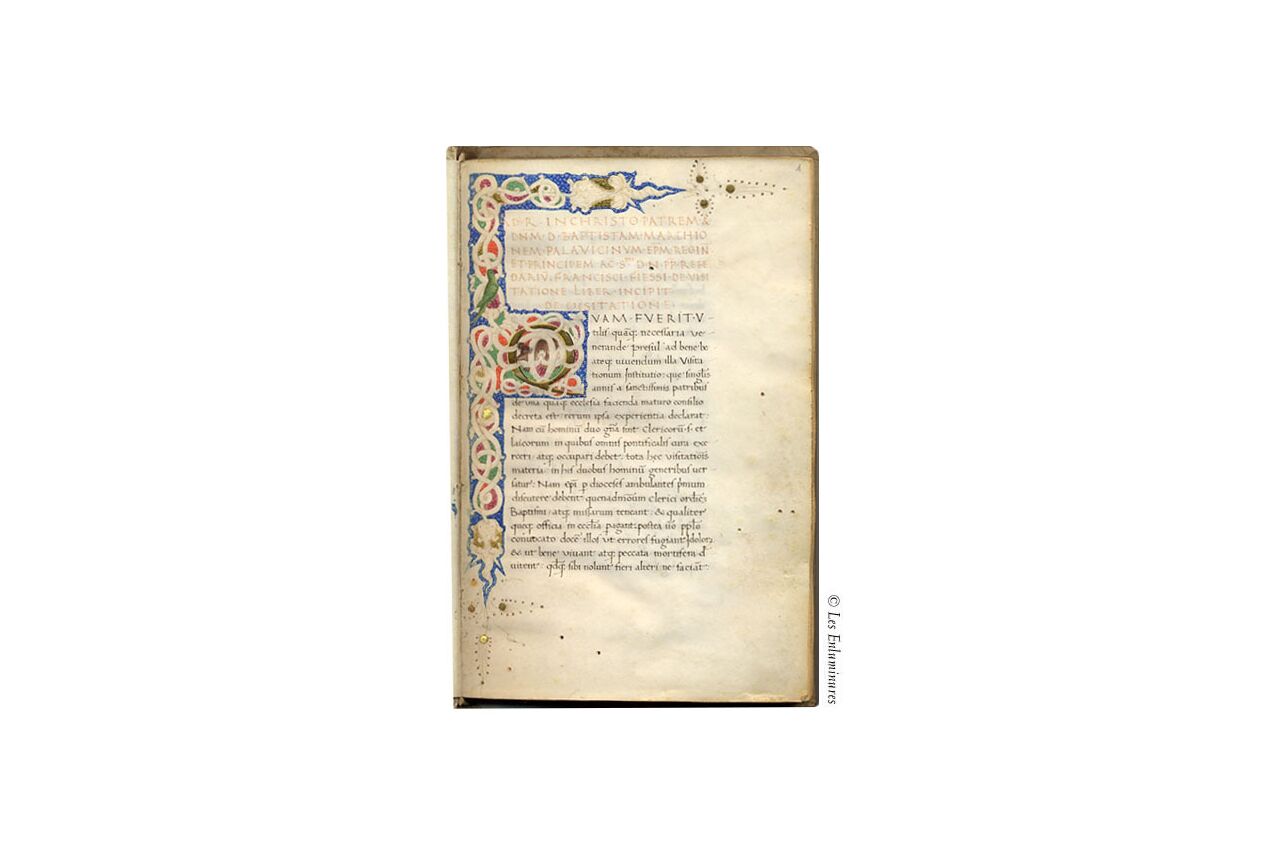 AD · R · IN CHRISTO PATREM &
DNM · D · BAPTISTAM MARCHIO
NEM PALAVICINVM EPM REGIN
ET PRINCIPEM AC S D · N · PP REFE
DARIV FRANCISCI FIESSI DE VISI
TATIONE LIBER INCIPIT
DE VISITATIONE
QVAM FVERIT V
tilis quāq; necessaria ve
nerande presul ad bene be
ateq; uiuendum illa Visita
tionum Institutio: que singlis
annis a sanctissimis patribus
de una quaq; ecclesia facienda maturo consilio
decreta est: rerum ipsa experientia declarat.
Nam cū hominū duo gña sint Clericorū · s · et
laicorum in quibus omnis pontificalis cura exe
rceri atq; occupari debet: tota hec visitationis
materia in his duobus hominū generibus uer
satur. Nam epī p dioceses ambulantes pmum
discutere debent quenadmōum clerici ordinē
Baptismi atq; missarum teneant: & qualiter
queq; officia in ecclīa pagant: postea uō pplo
conuocato docēt illos ut errores fugiant Idolor
& ut bene vivant atq; peccata mortifera d
vitent: qdq; sibi nolunt fieri alteri ne faciāt.
© Les Enluminures